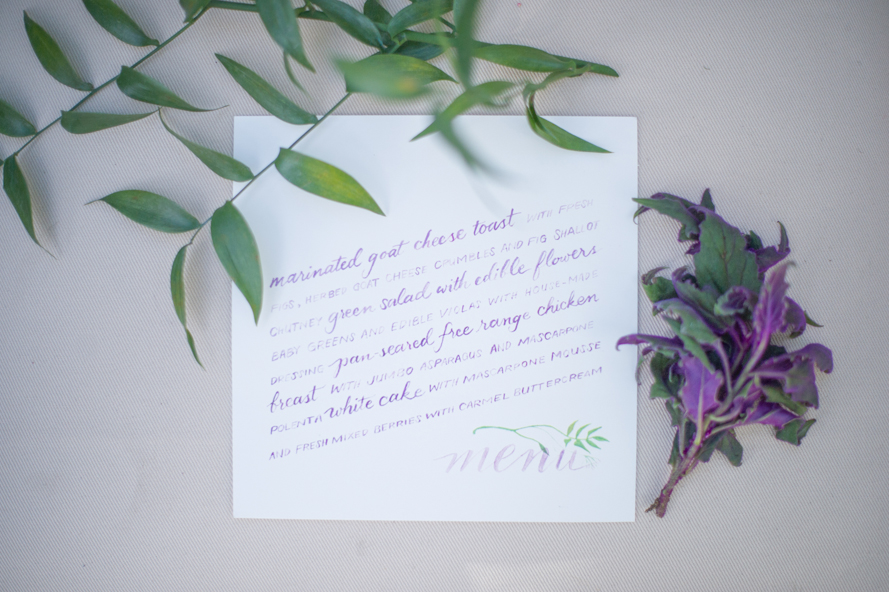 marinated goat cheese toast WITH FRESH
FIGS, HERBED GOAT CHEESE CRUMBLES AND FIG SHALLOT
CHUTNEY green salad with edible flowers
BABY GREENS AND EDIBLE VIOLAS WITH HOUSE-MADE
DRESSING pan-seared free range chicken
breast WITH JUMBO ASPARAGUS AND MASCARPONE
POLENTA white cake WITH MASCARPONE MOUSSE
AND FRESH MIXED BERRIES WITH CARMEL BUTTERCREAM
menu